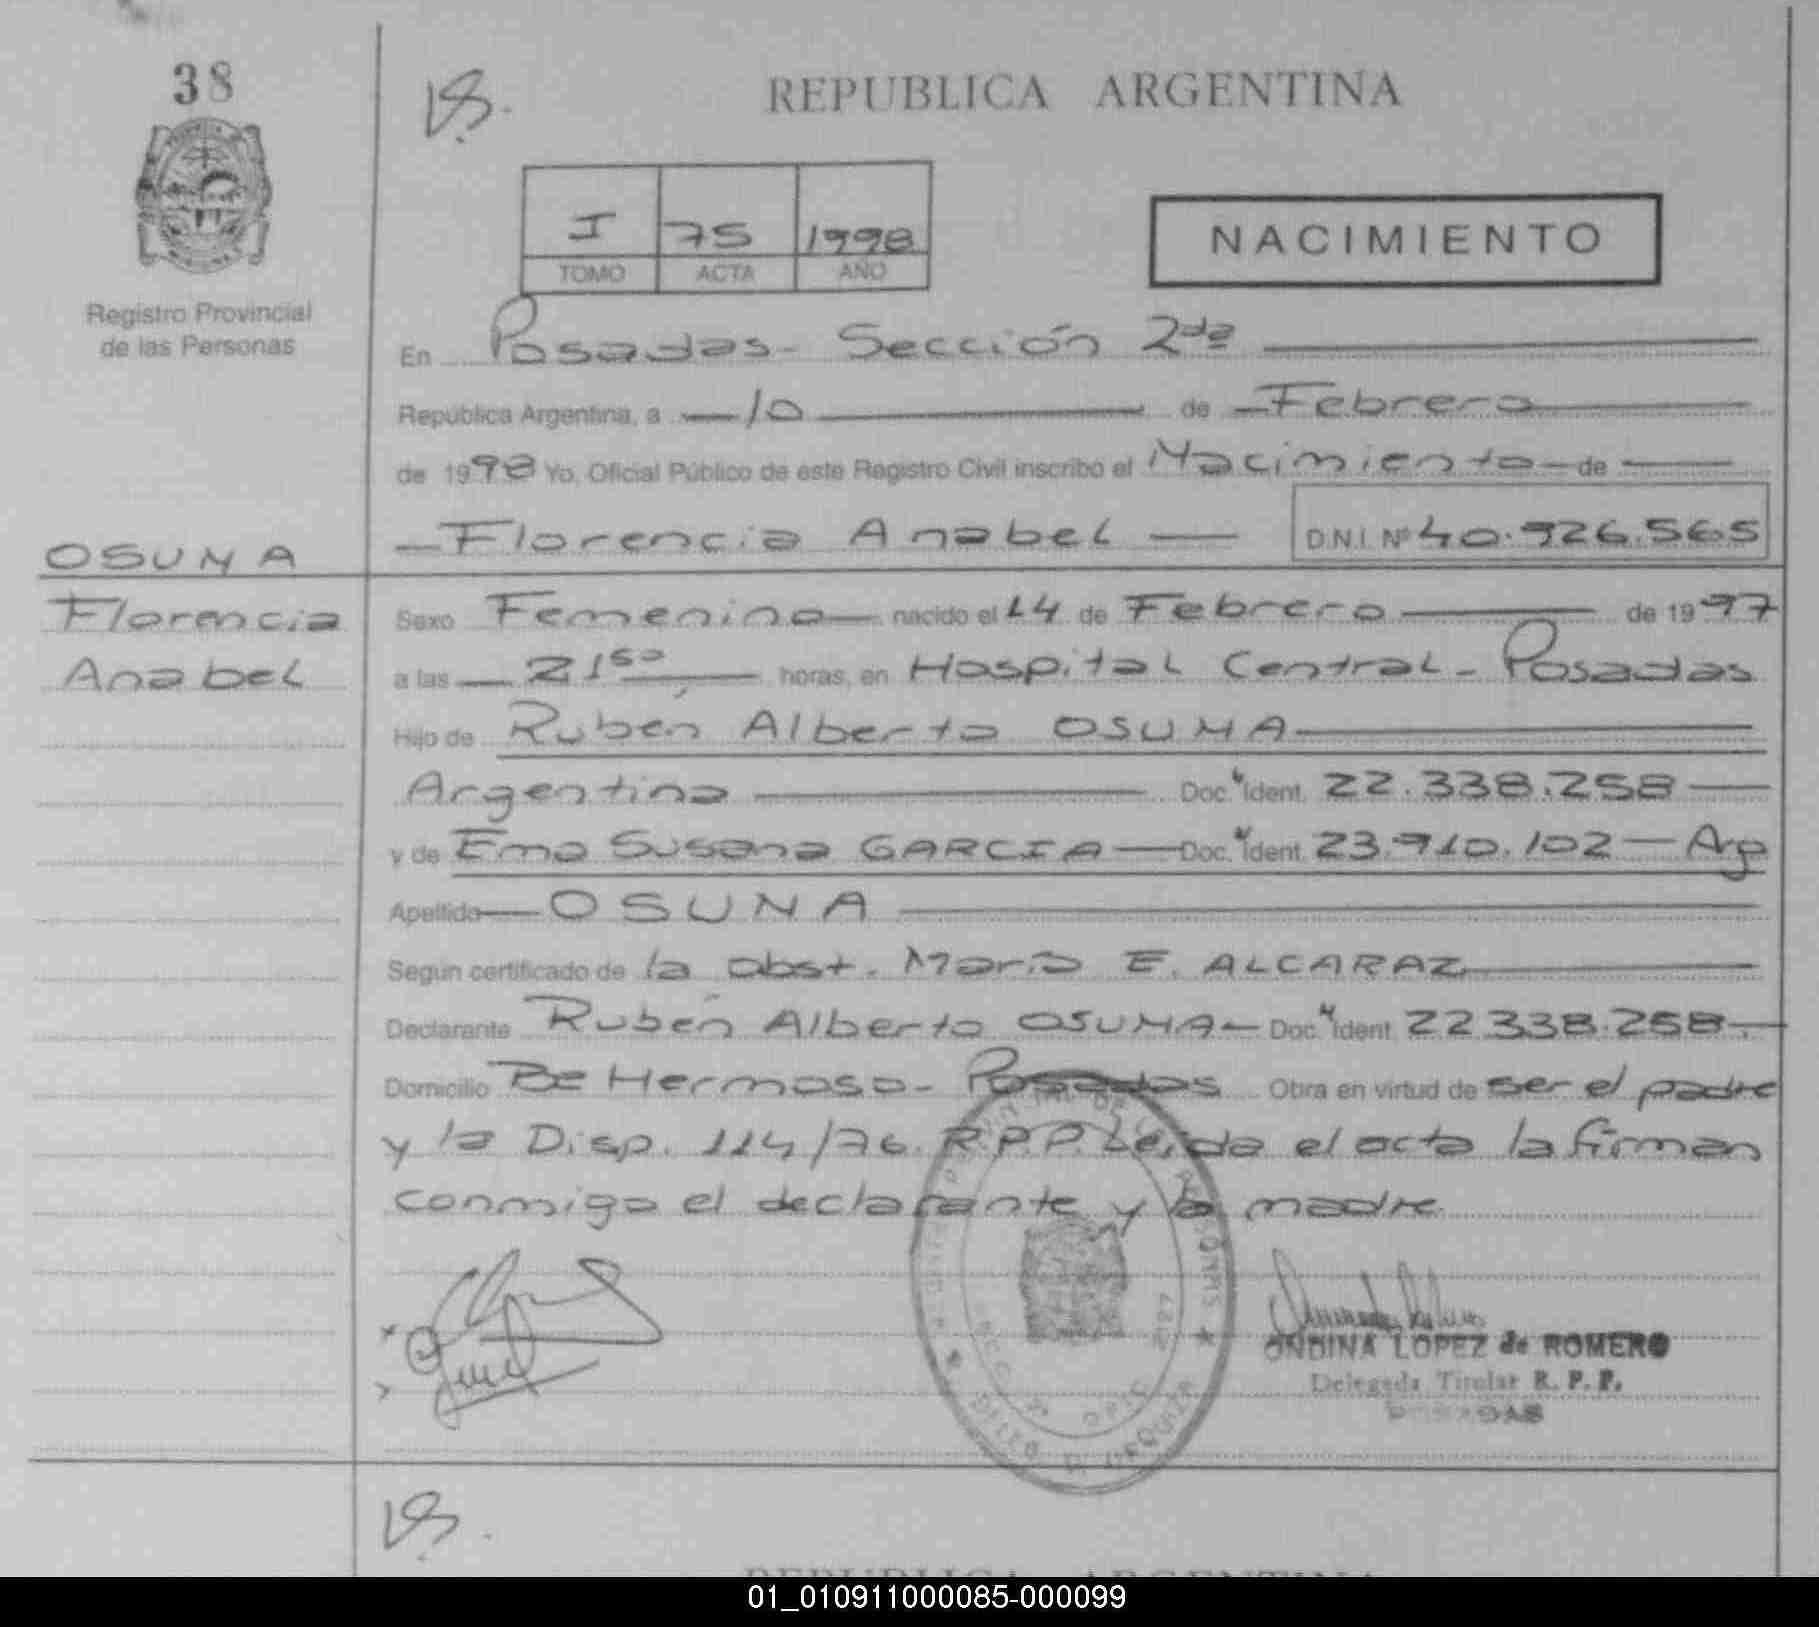 38
REPUBLICA ARGENTINA
I 75 1998
TOMO ACTA AÑO
NACIMIENTO
Registro Provincial
de las Personas
En Posadas - Sección 2da
República Argentina, a 10 de Febrero
de 1998 Yo, Oficial Público de este Registro Civil inscribo el Nacimiento de
Florencia Anabel D.N.I. Nº 40.926.565
OSUNA
Florencia
Anabel
Sexo Femenino nacido el 14 de Febrero de 1997
a las 21 50 horas, en Hospital Central - Posadas
Hijo de Rubén Alberto OSUNA
Argentina Doc. Ident. 22.338.258
y de Ema Susana GARCIA Doc. Ident. 23.910.102 - Arg
Apellido OSUNA
Según certificado de la obst. María E. ALCARAZ
Declarante Rubén Alberto OSUNA - Doc. Ident. 22.338.258 - .
Domicilio Bº Hermoso - Posadas Obra en virtud de ser el padre
y la Disp. 114/76 R.P.P. Leída el acta la firman
conmigo el declarante y la madre
ONDINA LOPEZ de ROMERO
Delegada Titular R. P. P.
POSADAS
REPUBLICA ARGENTINA
01_010911000085-000099